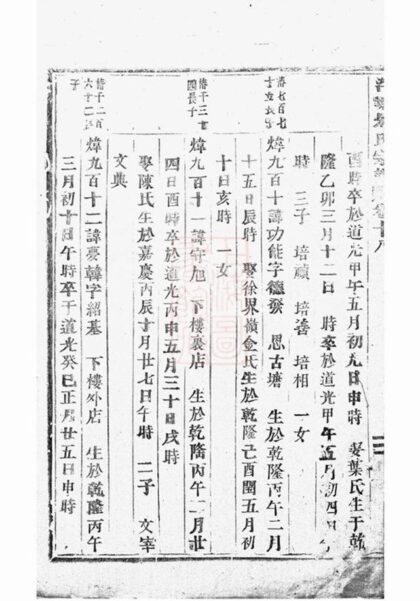 酉時卒於道光甲午五月初九日申時 娶葉氏生于乾
隆乙卯三月十二日 時卒於道光甲午五月初四日
時 三子 培碩 培善 培相 一女
濬七百七
煒九百十諱功能字德發 恩古塘 生於乾隆丙午二月
十五日辰時 娶徐界嶺金氏生於乾隆己酉閏五月初
十日亥時 一女
濬千三
四長子
煒九百十一諱守旭 下樓裏店 生於乾隆丙午二月廿
四日酉時卒於道光丙申五月三十日戌時
娶陳氏生於嘉慶丙辰十月廿七日午時 二子 文宰
文典
濬千二百
六十二
子
煒九百十二諱慶韓字紹基 下樓外店 生於乾隆丙午
三月初十日午時卒于道光癸巳正月廿五日申時